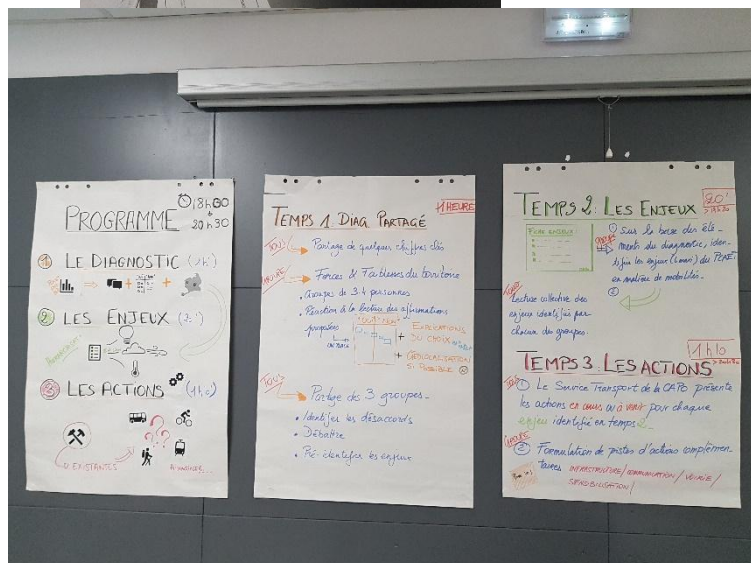 PROGRAMME
18h00
20h30
1 LE DIAGNOSTIC (1h)
2 LES ENJEUX
3 LES ACTIONS (1h10)
D'EXISTANTES
TEMPS 1. DIAG PARTAGÉ
1 HEURE
TOUS
Partage de quelques chiffres clés
GROUPE
Forces & Faiblesses du territoire
. Groupes de 3-4 personnes
. Réaction à la lecture des affirmations
proposées
+ EXPLICATIONS
DU CHOIX
+ GÉOLOCALISATION
SI POSSIBLE
TOUS
Partage des 3 groupes.
• Identifier les désaccords
• Débattre
• Pré-identifier les enjeux
TEMPS 2: LES ENJEUX
20'
FICHE ENJEUX:
GROUPE
1 Sur la base des élé-
ments du diagnostic, iden-
tifier les enjeux
en matière de mobilités.
TOUS
2
Lecture collective des
enjeux identifiés par
chacun des groupes.
1h10
TEMPS 3: LES ACTIONS
TOUS
1 Le Service Transport de la CAPC présente
les actions en cours ou à venir pour chaque
enjeu identifié en temps 2.
GROUPE
2 Formulation de pistes d'actions complémen-
taires INFRASTRUCTURE / COMMUNICATION / VOIRIE /
SENSIBILISATION /